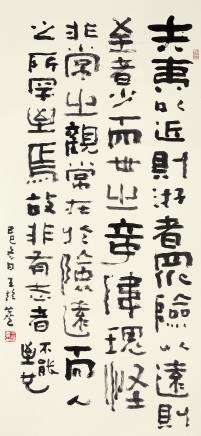 夫夷以近則游者眾險以遠則
至者少而世之奇偉瑰怪
非常之觀常在於險遠而人
之所罕至焉故非有志者不能至也
己巳